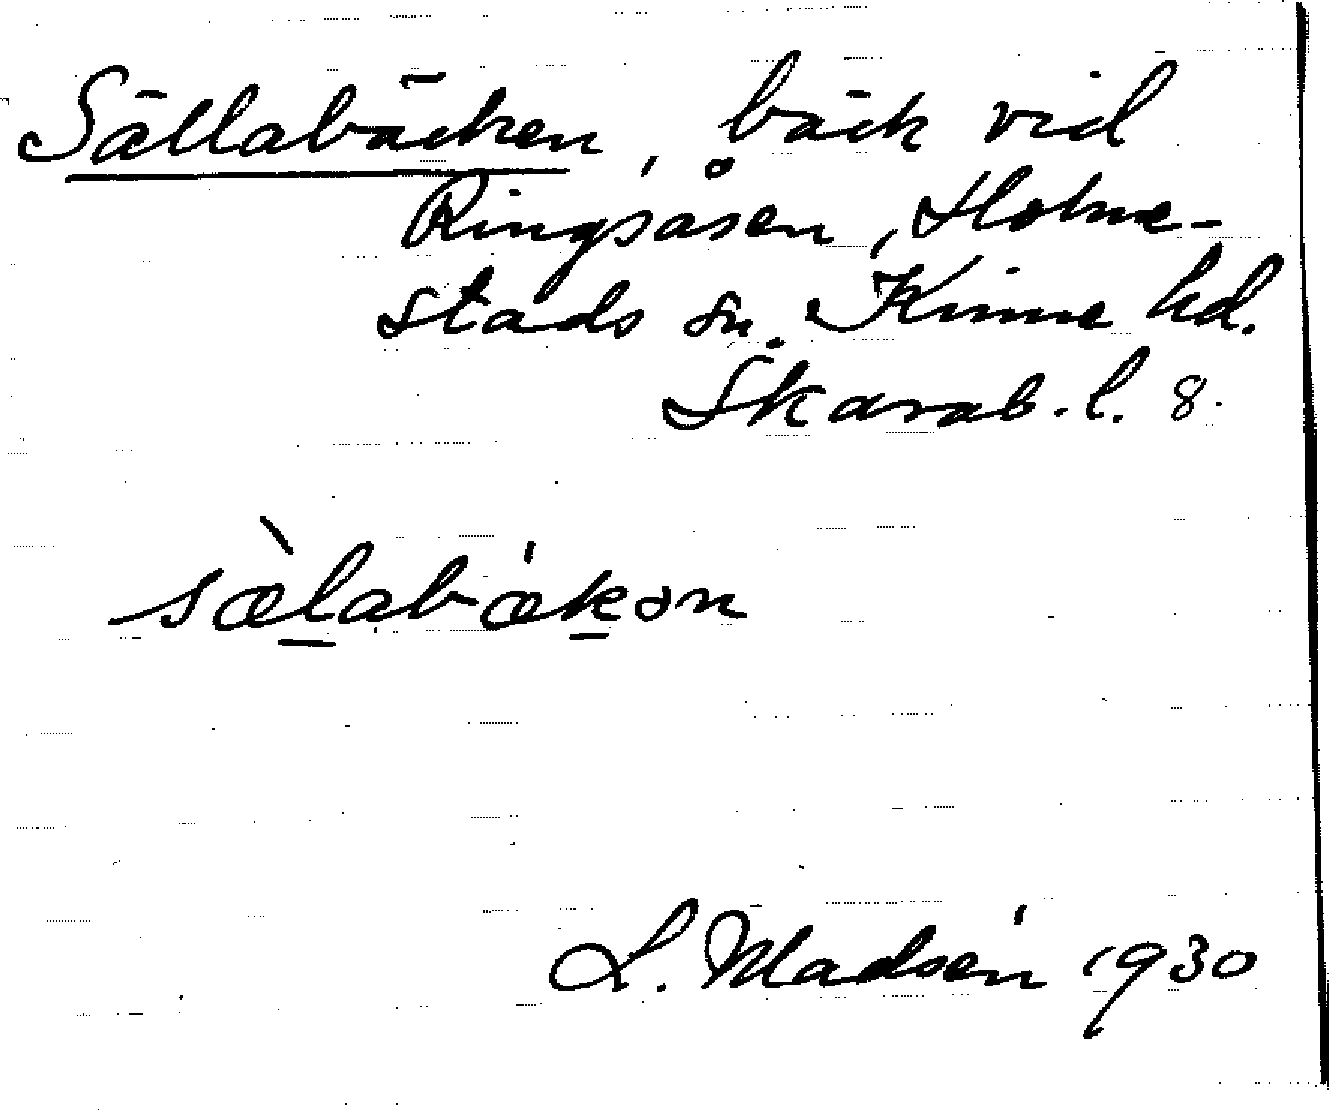 Sällabäcken, bäck vid
Ringsåsen, Holme-
stads sn. Kinne hd.
Skarab. l. 8.
sæ̀labǽkən
L. Madsén 1930